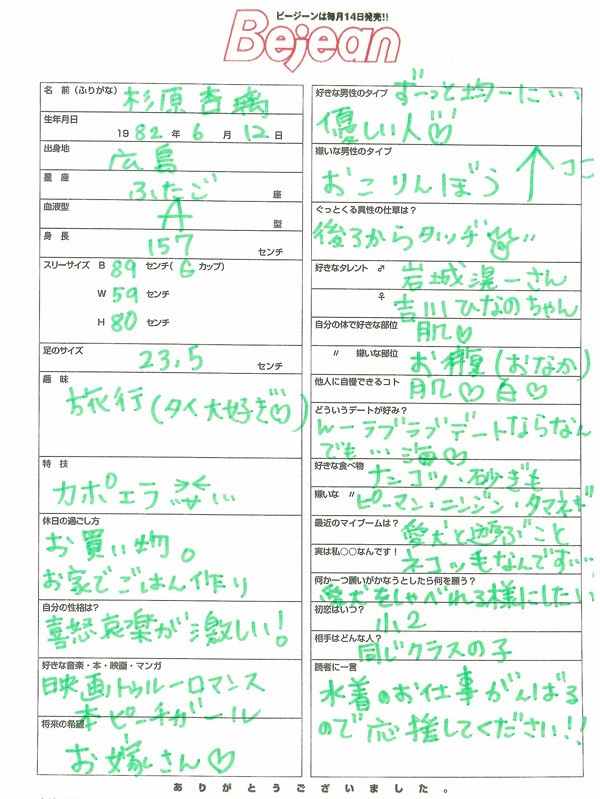 ビージーンは毎月14日発売!!
Bejean
名 前(ふりがな) 杉原杏璃
生年月日
1982年6月12日
出身地 広島
星 座 ふたご 座
血液型 A 型
身 長 157 センチ
スリーサイズ B 89 センチ(Gカップ)
W 59 センチ
H 80 センチ
足のサイズ 23.5 センチ
趣 味
旅行(タイ大好き♡)
特 技
カポエラ
休日の過ごし方
お買い物。
お家でごはん作り
自分の性格は?
喜怒哀楽が激しい!
好きな音楽・本・映画・マンガ
映画トゥルーロマンス
本ピーチガール
将来の希望
お嫁さん♡
好きな男性のタイプ ずーっと均一に…
優しい人♡
嫌いな男性のタイプ
おこりんぼう ↑ ココ
ぐっとくる異性の仕草は?
後ろからタッチ
好きなタレント ♂ 岩城滉一さん
♀ 吉川ひなのちゃん
自分の体で好きな部位 肌♡
〃 嫌いな部位 お腹(おなか)
他人に自慢できるコト 肌♡白♡
どういうデートが好み?
んーラブラブデートならなん
でも…海♡
好きな食べ物 ナンコツ・砂ぎも
嫌いな 〃 ピーマン・ニンジン・タマネギ
最近のマイブームは? 愛犬と遊ぶこと
実は私○○なんです! ネコッ毛なんです…
何か一つ願いがかなうとしたら何を願う?
愛犬をしゃべれる様にしたい
初恋はいつ? 小2
相手はどんな人? 同じクラスの子
読者に一言
水着のお仕事がんばる
ので応援してください!!
ありがとうございました。